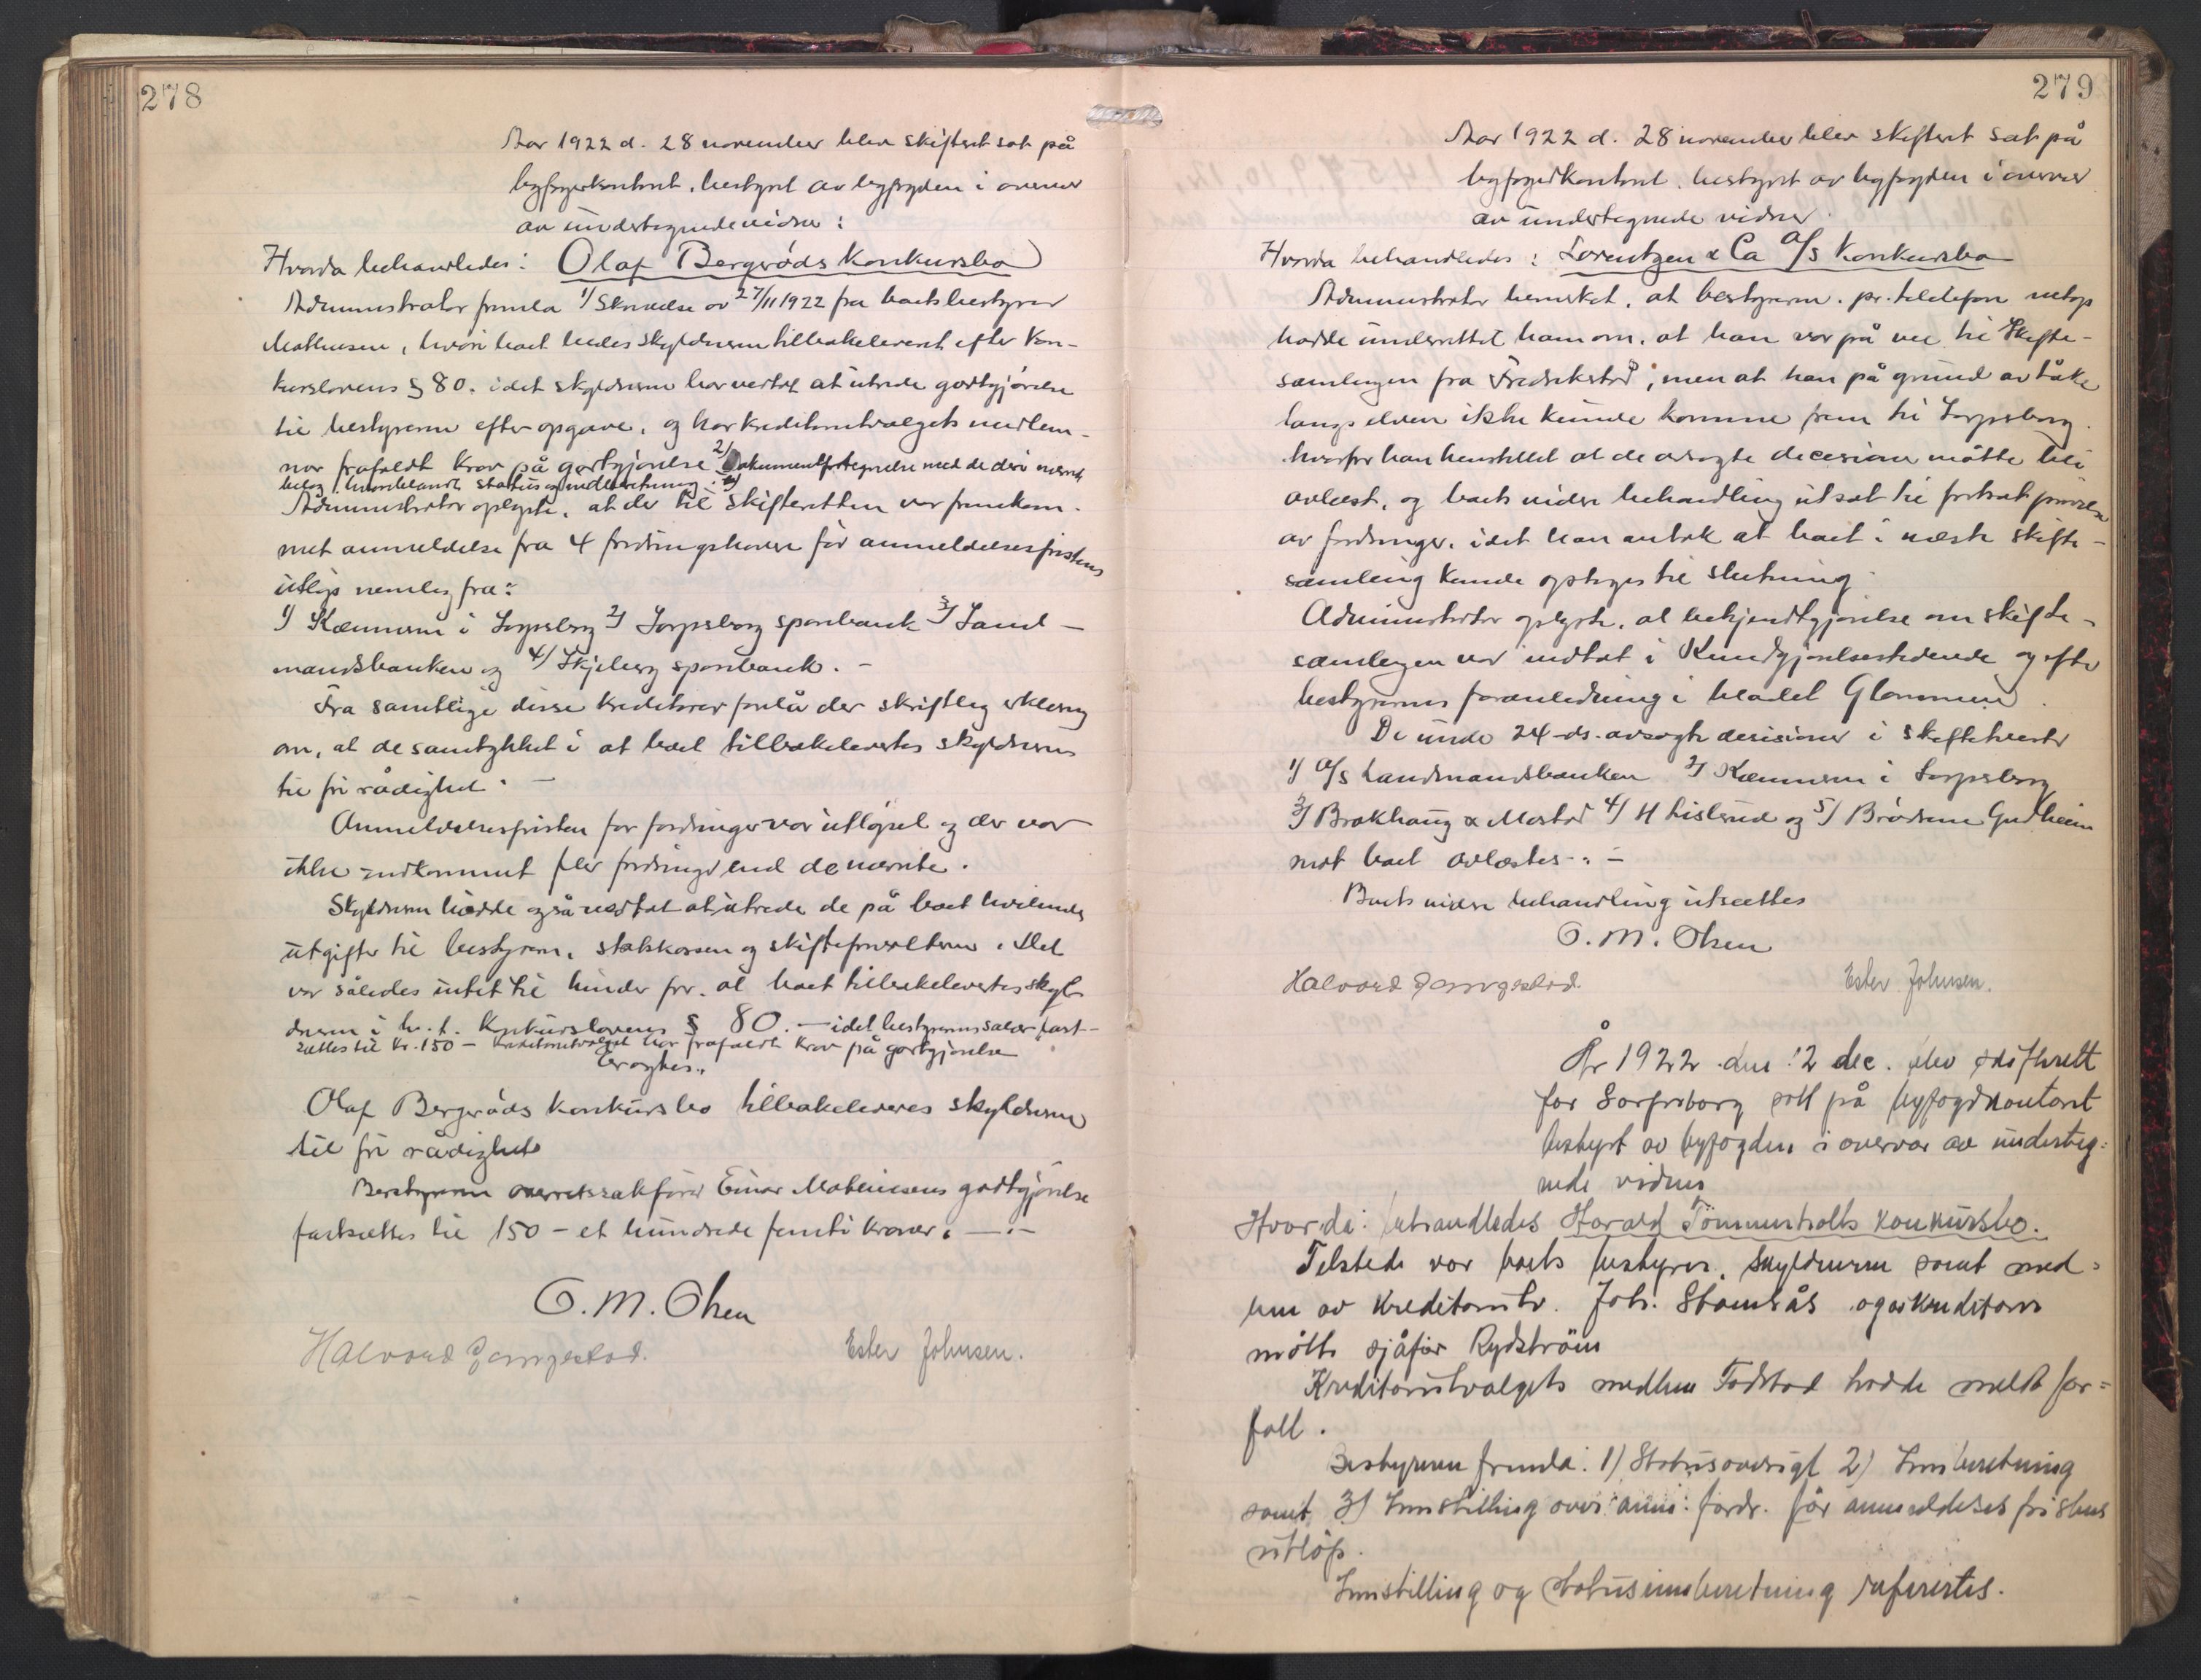 278
Aar 1922 d. 28 november blev skifteret sat på
byfogedkontoret, bestyret av byfogden i overvær
av undertegnede vidner:
Hvorda behandledes: Olaf Bergerøds Konkursbo
Administrator fremla 1/ Skrivelse av 27/11 1922 fra boets bestyrer
Mathiesen, hvori boet bedes skyldneren tilbakeleveret efter Kon-
kurslovens § 80. idet skyldneren har vedtat at utrede godtgjørelse
til bestyreren efter opgave, og har kreditorutvalgets medlem-
mer frafaldt krav på godtgjørelse 2/ Dokumentfortegnelse med de deri nævnte
bilag, hvoriblandt status og indberetning.
Administrator oplyste, at der til skifteretten var fremkom-
met anmeldelse fra 4 fordringshavere før anmeldelsesfristens
utløp nemlig fra:
1) Kæmneren i Sarpsborg 2) Sarpsborg sparebank 3) Land-
mandsbanken og 4/ Skjeberg sparebank. -
Fra samtlige disse kreditorer forelå der skriftlig erklæring
om, at de samtykket i at boet tilbakelevertes skyldneren
til fri rådighet. -
Anmeldelsesfristen for fordringer var utløpet og der var
ikke indkommet fler fordringer end de nævnte.
Skyldneren hadde også vedtat at utrede de på boet hvilende
utgifter til bestyreren, statskassen og skifteforvalteren. Det
var således intet til hinder for, at boet tilbakelevertes skyld-
neren i h. t. Konkurslovens § 80. - idet bestyrerens salær fast-
sættes til kr. 150 - Kreditorutvalget har frafaldt krav på godtgjørelse
Eragtes:
Olaf Bergerøds konkursbo tilbakeleveres skyldneren
til fri rådighet
Bestyreren overretssakfører Einar Mathiesens godtgjørelse
fastsættes til 150 - et hundrede femti kroner. -.-
O. M. Olsen
Halvard Gangestad. Ester Johnsen.
279
Aar 1922 d. 28 november blev skifteret sat på
byfogedkontoret, bestyret av byfogden i overvær
av undertegnede vidner
Hvorda behandledes: Lorentzen & Co A/S Konkursbo
Administrator bemerket, at bestyreren pr. telefon netop
hadde underrettet ham om, at han var på vei til Skifte-
samlingen fra Fredrikstad, men at han på grund av tåke
langs elven ikke kunde komme frem til Sarpsborg.
hvorfor han henstillet at de avsagte decisioner måtte bli
avlæst, og boets videre behandling utsat til fortsat prøvelse
av fordringer, idet han antok at boet i næste skifte-
samling kunde optages til slutning.
Administrator oplyste, at bekjendtgjørelse om skifte-
samlingen var indtat i Kundgjørelsestidende og efter
bestyrerens foranledning i bladet Glommen.
De under 24-ds. avsagte decisioner i skiftetvister
1/ A/S Landmandsbanken 2/ Kæmneren i Sarpsborg
3/ Brakhaug & Mostad 4/ H Lislerud og 5/ Brødrene Gudheim
mot boet avlæstes. -
Boets videre behandling utsættes
O. M. Olsen
Halvard Gangestad. Ester Johnsen.
År 1922 den 12 dec. blev skifterett
for Sarpsborg satt på byfogdkontoret
bestyrt av byfogden i overvær av underteg-
nede vidner
Hvorda: behandledes Harald Tømmerholts konkursbo.
Tilstede var boets bestyrer, skyldneren samt med-
lem av kreditorutv. Joh. Stomsås og av kreditorer
møtte sjåfør Rydström
Kreditorutvalgets medlem Fodstad hadde meldt for-
fall.
Bestyreren fremla: 1) Statusoversigt 2) Innberetning
samt 3) Innstilling over anm. fordr. før anmeldelsesfristens
utløp.
Innstilling og statusinnberetning refererter.